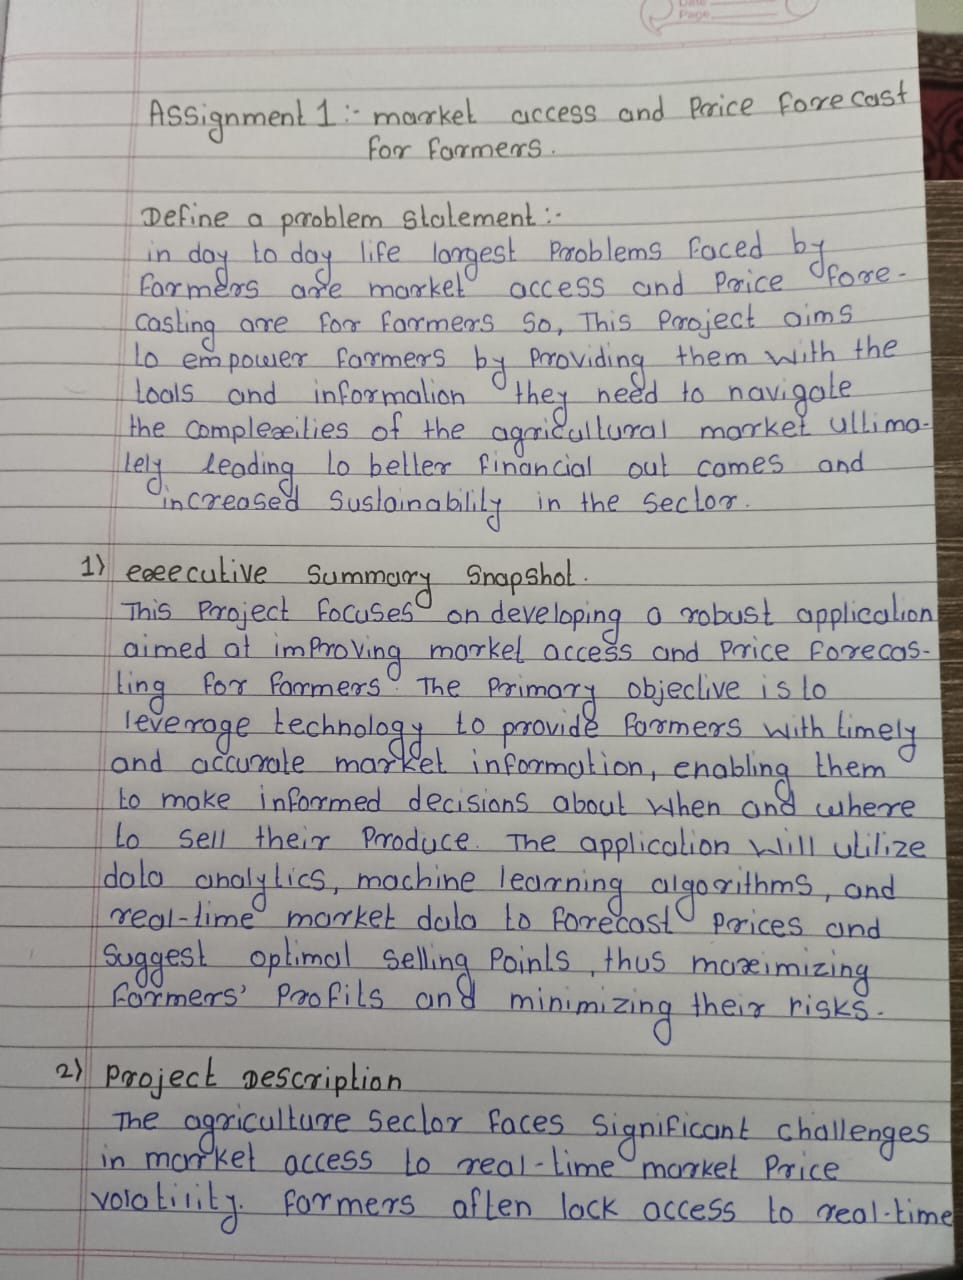 Date
Page
Assignment 1 :- market access and Price forecast
for farmers.
Define a problem statement :-
in day to day life largest Problems faced by
farmers are market access and Price fore-
casting are for farmers So, This Project aims
to empower farmers by Providing them with the
tools and information they need to navigate
the complexities of the agricultural market ultima-
tely leading to better financial out comes and
increased Sustainability in the Sector.
1) executive Summary Snapshot.
This Project Focuses on developing a robust application
aimed at improving market access and Price Forecas-
ting for farmers. The Primary objective is to
leverage technology to provide farmers with timely
and accurate market information, enabling them
to make informed decisions about when and where
to sell their Produce. The application will utilize
data analytics, machine learning algorithms, and
real-time market data to forecast Prices and
Suggest optimal Selling Points, thus maximizing
farmers' Profits and minimizing their risks.
2) Project Description
The agriculture Sector faces Significant challenges
in market access to real-time market Price
volatility. farmers often lack access to real-time